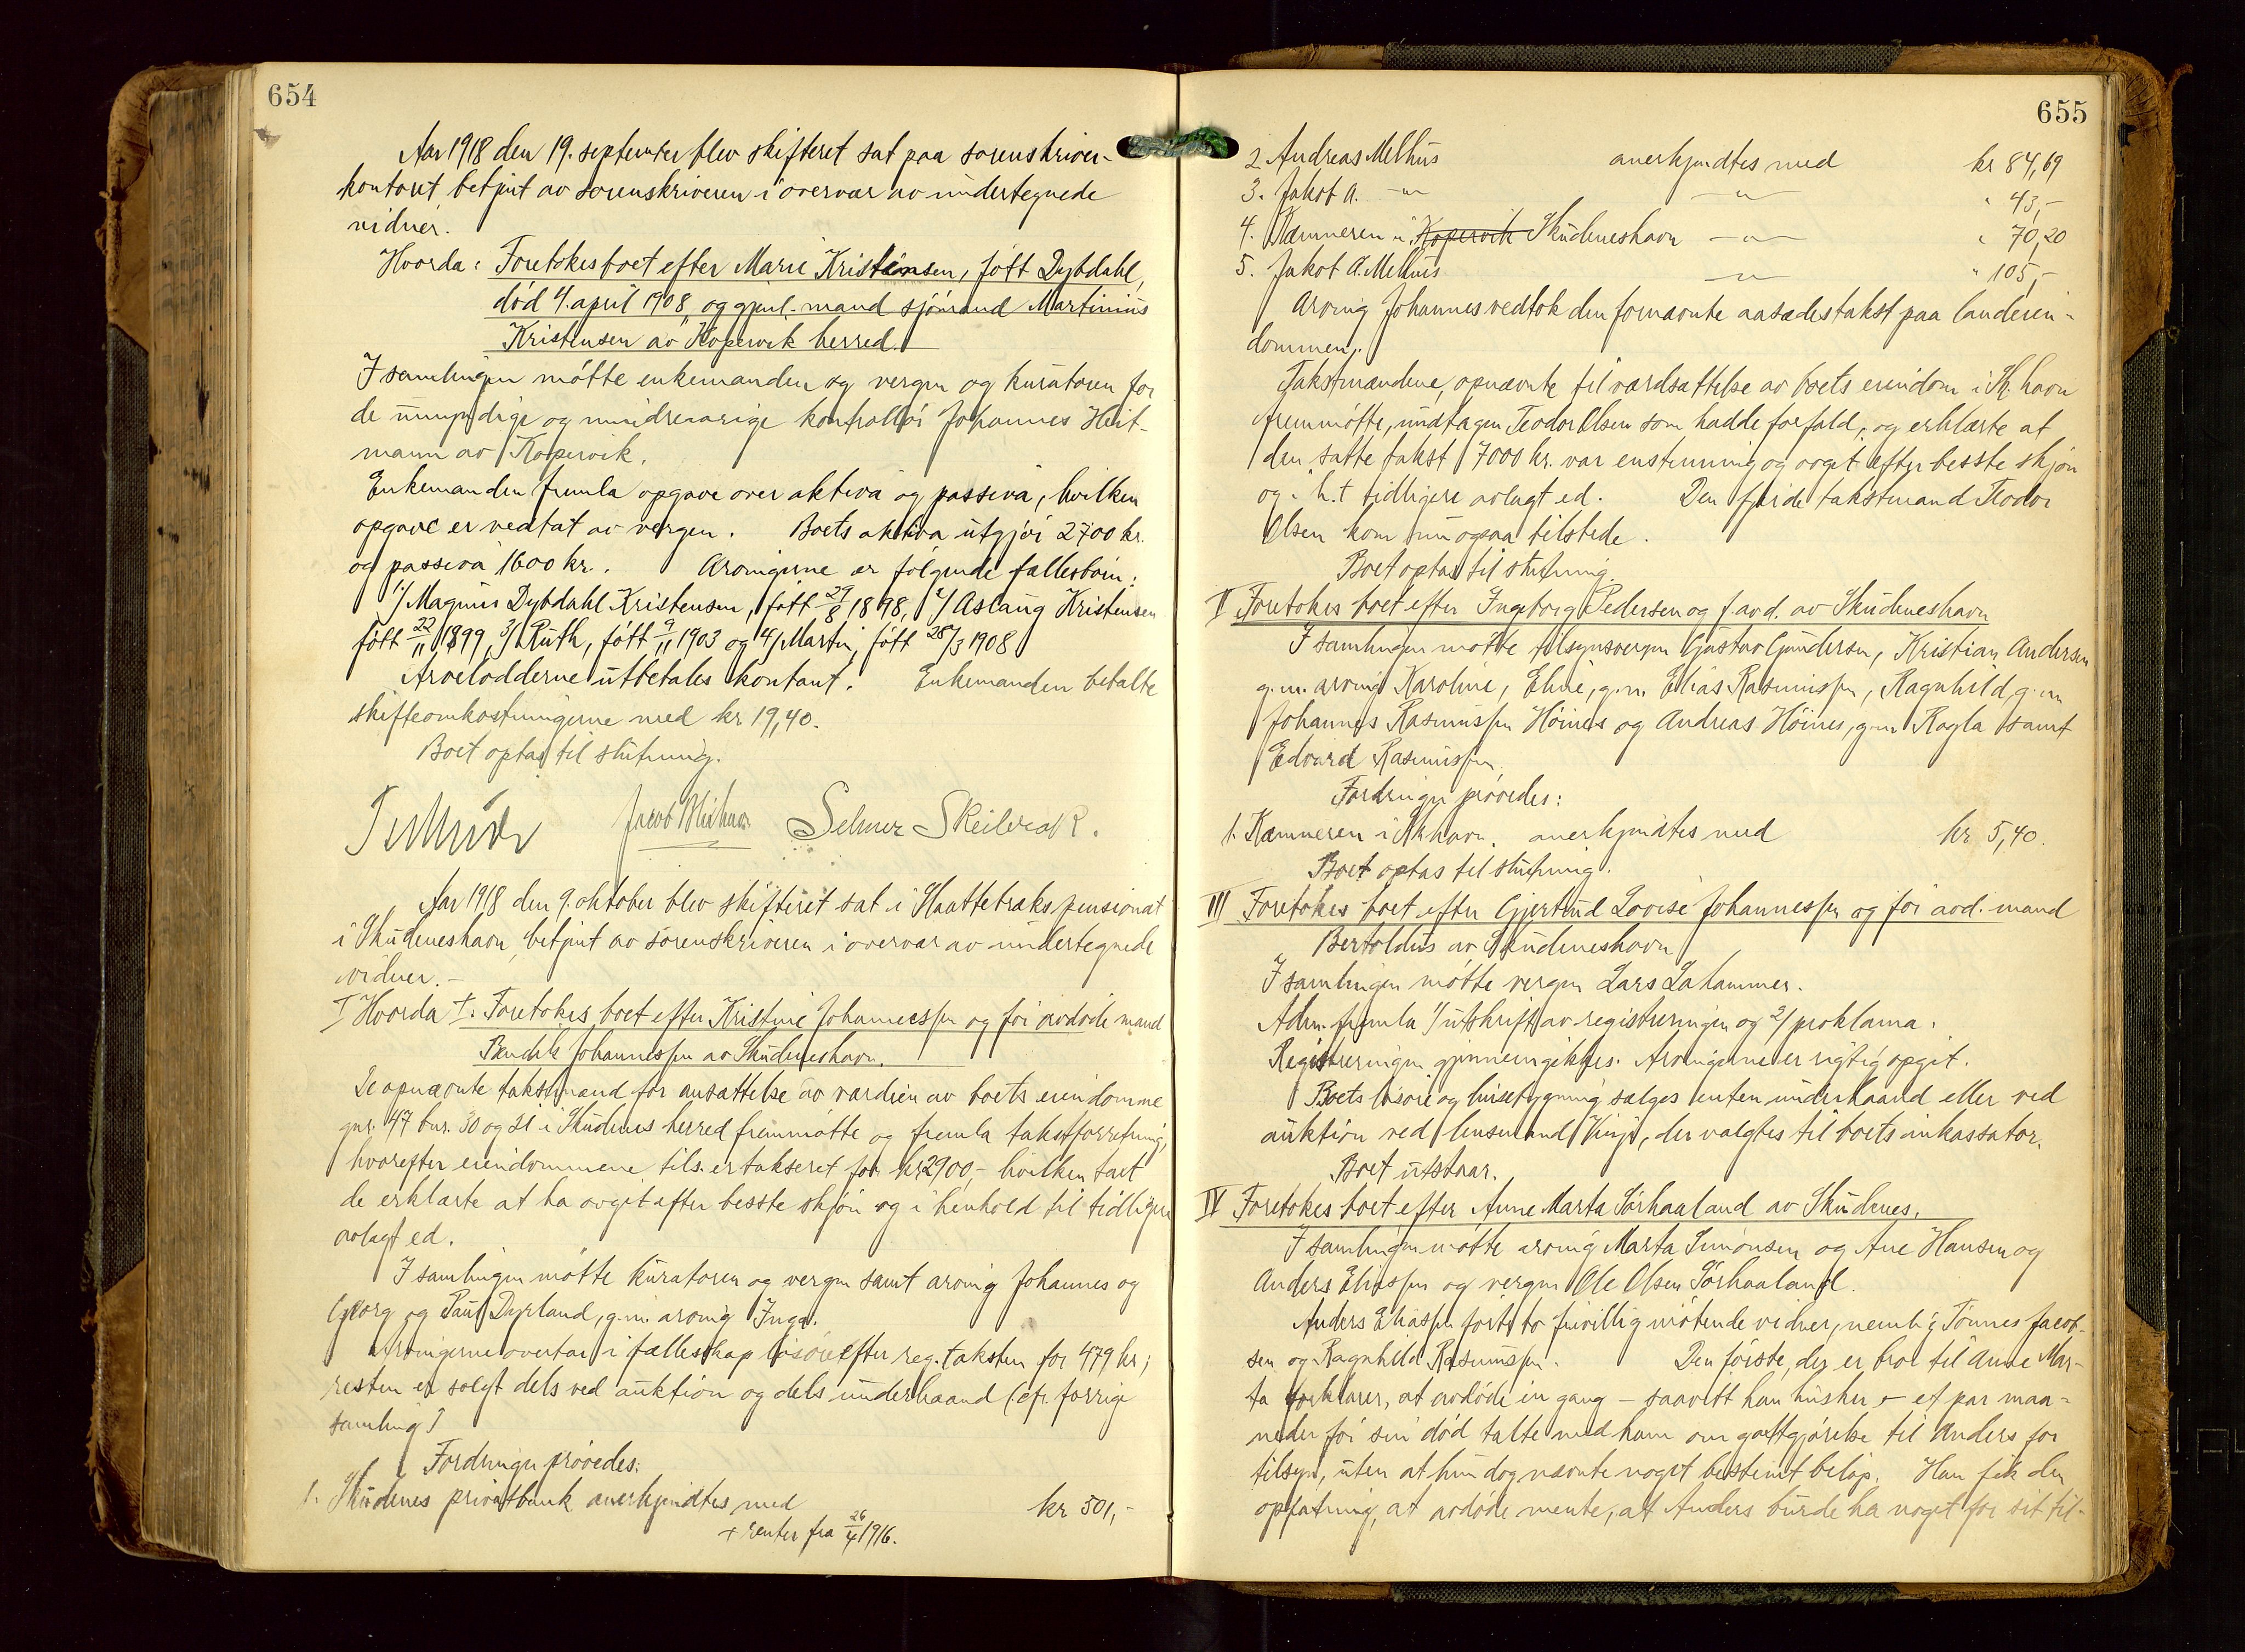 654
Aar 1918 den 19. september blev skifteret sat paa sorenskriver-
kontoret, betjent av sorenskriveren i overvær av undertegnede
vidner.
Hvorda: Foretokes boet efter Marie Kristensen, født Dybdahl,
död 4. april 1908, og gjenl. mand sjömand Martinius
Kristensen av Kopervik herred.
I samlingen mötte enkemanden og vergen og kuratoren for
de umyndige og mindreaarige kontrollör Johannes Heit-
mann av Kopervik.
Enkemanden fremla opgave over aktiva og passiva, hvilken
opgave er vedtat av vergen. Boets aktiva utgjör 2700 kr.
og passiva 1600 kr. Arvingerne er fölgende fællesbörn:
1/ Magnus Dybdahl Kristensen, fött 29/8 1898, 2/ Aslaug Kristensen
fött 22/11 1899, 3/ Ruth, fött 9/11 1903 og 4/ Martin, fött 28/3 1908
Arvelodderne utbetales kontant. Enkemanden betalte
skifteomkostningerne med kr 19,40.
Boet optas til slutning.
Selmer Skeilvak.
Aar 1918 den 9. oktober blev skifteret sat i Haattetraks pensionat
i Skudeneshavn, betjent av sorenskriveren i overvær av undertegnede
vidner.-
I Hvorda I. Foretokes boet efter Kristine Johannessen og för avdöde mand
Bendik Johannessen av Skudeneshavn.
De opnævnte takstmænd for ansættelse av værdien av boets eiendomme
gnr. 47 bnr. 30 og 31 i Skudenes herred fremmötte og fremla takstforretning,
hvorefter eiendommene tils. er taksert for kr 2900,- hvilken takst
de erklærte at ha avgit efter besste skjön og i henhold til tidligere
avlagt ed.
I samlingen mötte kuratoren og vergen samt arving Johannes og
Georg og Paul Dyrland, g.m. arving Inga.
Arvingerne overtar i fællesskap lösöre efter reg. taksten for 479 kr;
resten er solgt dels ved auktion og dels underhaand (cfr. forrige
samling)
Fordringer prövedes:
1. Skudenes privatbank anerkjendtes med kr 501,-
+ renter fra 26/4 1916.
655
2. Andreas Melhus anerkjendtes med kr 84,69
3. Jakob A. -"- -"- " 43,-
4. Kæmneren i Kopervik Skudeneshavn -"- " 70,20
5. Jakob A. Melhus -"- " 105,-
Arving Johannes vedtok den fornævnte aasædestakst paa landeien-
dommen.
Takstmændene, opnævnte til værdsættelse av boets eiendom i Sk.havn
fremmötte, undtagen Teodor Olsen som hadde forfald, og erklærte at
den satte takst 7000 kr. var enstemmig og avgit efter besste skjön
og i h.t. tidligere avlagt ed. Den fjerde takstmand Teodor
Olsen kom nu ogsaa tilstede.
Boet optas til slutning.
II Foretokes boet efter Ingeborg Pedersen og f. avd. av Skudeneshavn
I samlingen mötte tilsynsvergen Gustav Gundersen, Kristian Andersen
g.m. arving Karoline, Eline, g.m. Elias Rasmussen, Ragnhild, g.m.
Johannes Rasmussen Höines og Andreas Höines, g.m. Ragla samt
Edvard Rasmussen.
Fordringer prövedes:
1. Kæmneren i Sk.havn. anerkjendtes med kr 5,40.
Boet optas til slutning.
III Foretokes boet efter Gjertrud Lovise Johannessen og för avd. mand
Bertoldus av Skudeneshavn
I samlingen mötte vergen Lars Lahammer.
Adm. fremla 1/ utskrift av registreringen og 2/ proklama.
Registreringen gjennemgikkes. Arvingerne er rigtig opgit.
Boets lösöre og husebygning sælges enten underhaand eller ved
auktion ved lensmand Vinje, der valgtes til boets inkassator.
Boet utstaar.
IV Foretokes boet efter Anne Marta Sörhaaland av Skudenes.
I samlingen mötte arving Marta Simonsen og Ane Hansen og
Anders Eliassen og vergen Ole Olsen Sörhaaland.
Anders Eliassen förte to frivillig mötende vidner, nemlig Tönnes Jacob-
sen og Ragnhild Rasmussen. Den förste, der er bror til Anne Mar-
ta forklarer, at avdöde en gang – saavidt han husker – et par maa-
neder för sin död talte med ham om godtgjörelse til Anders for
tilsyn, uten at hun dog nævnte noget bestemt belöp. Han fik den
opfatning, at avdöde mente, at Anders burde ha noget for sit til-